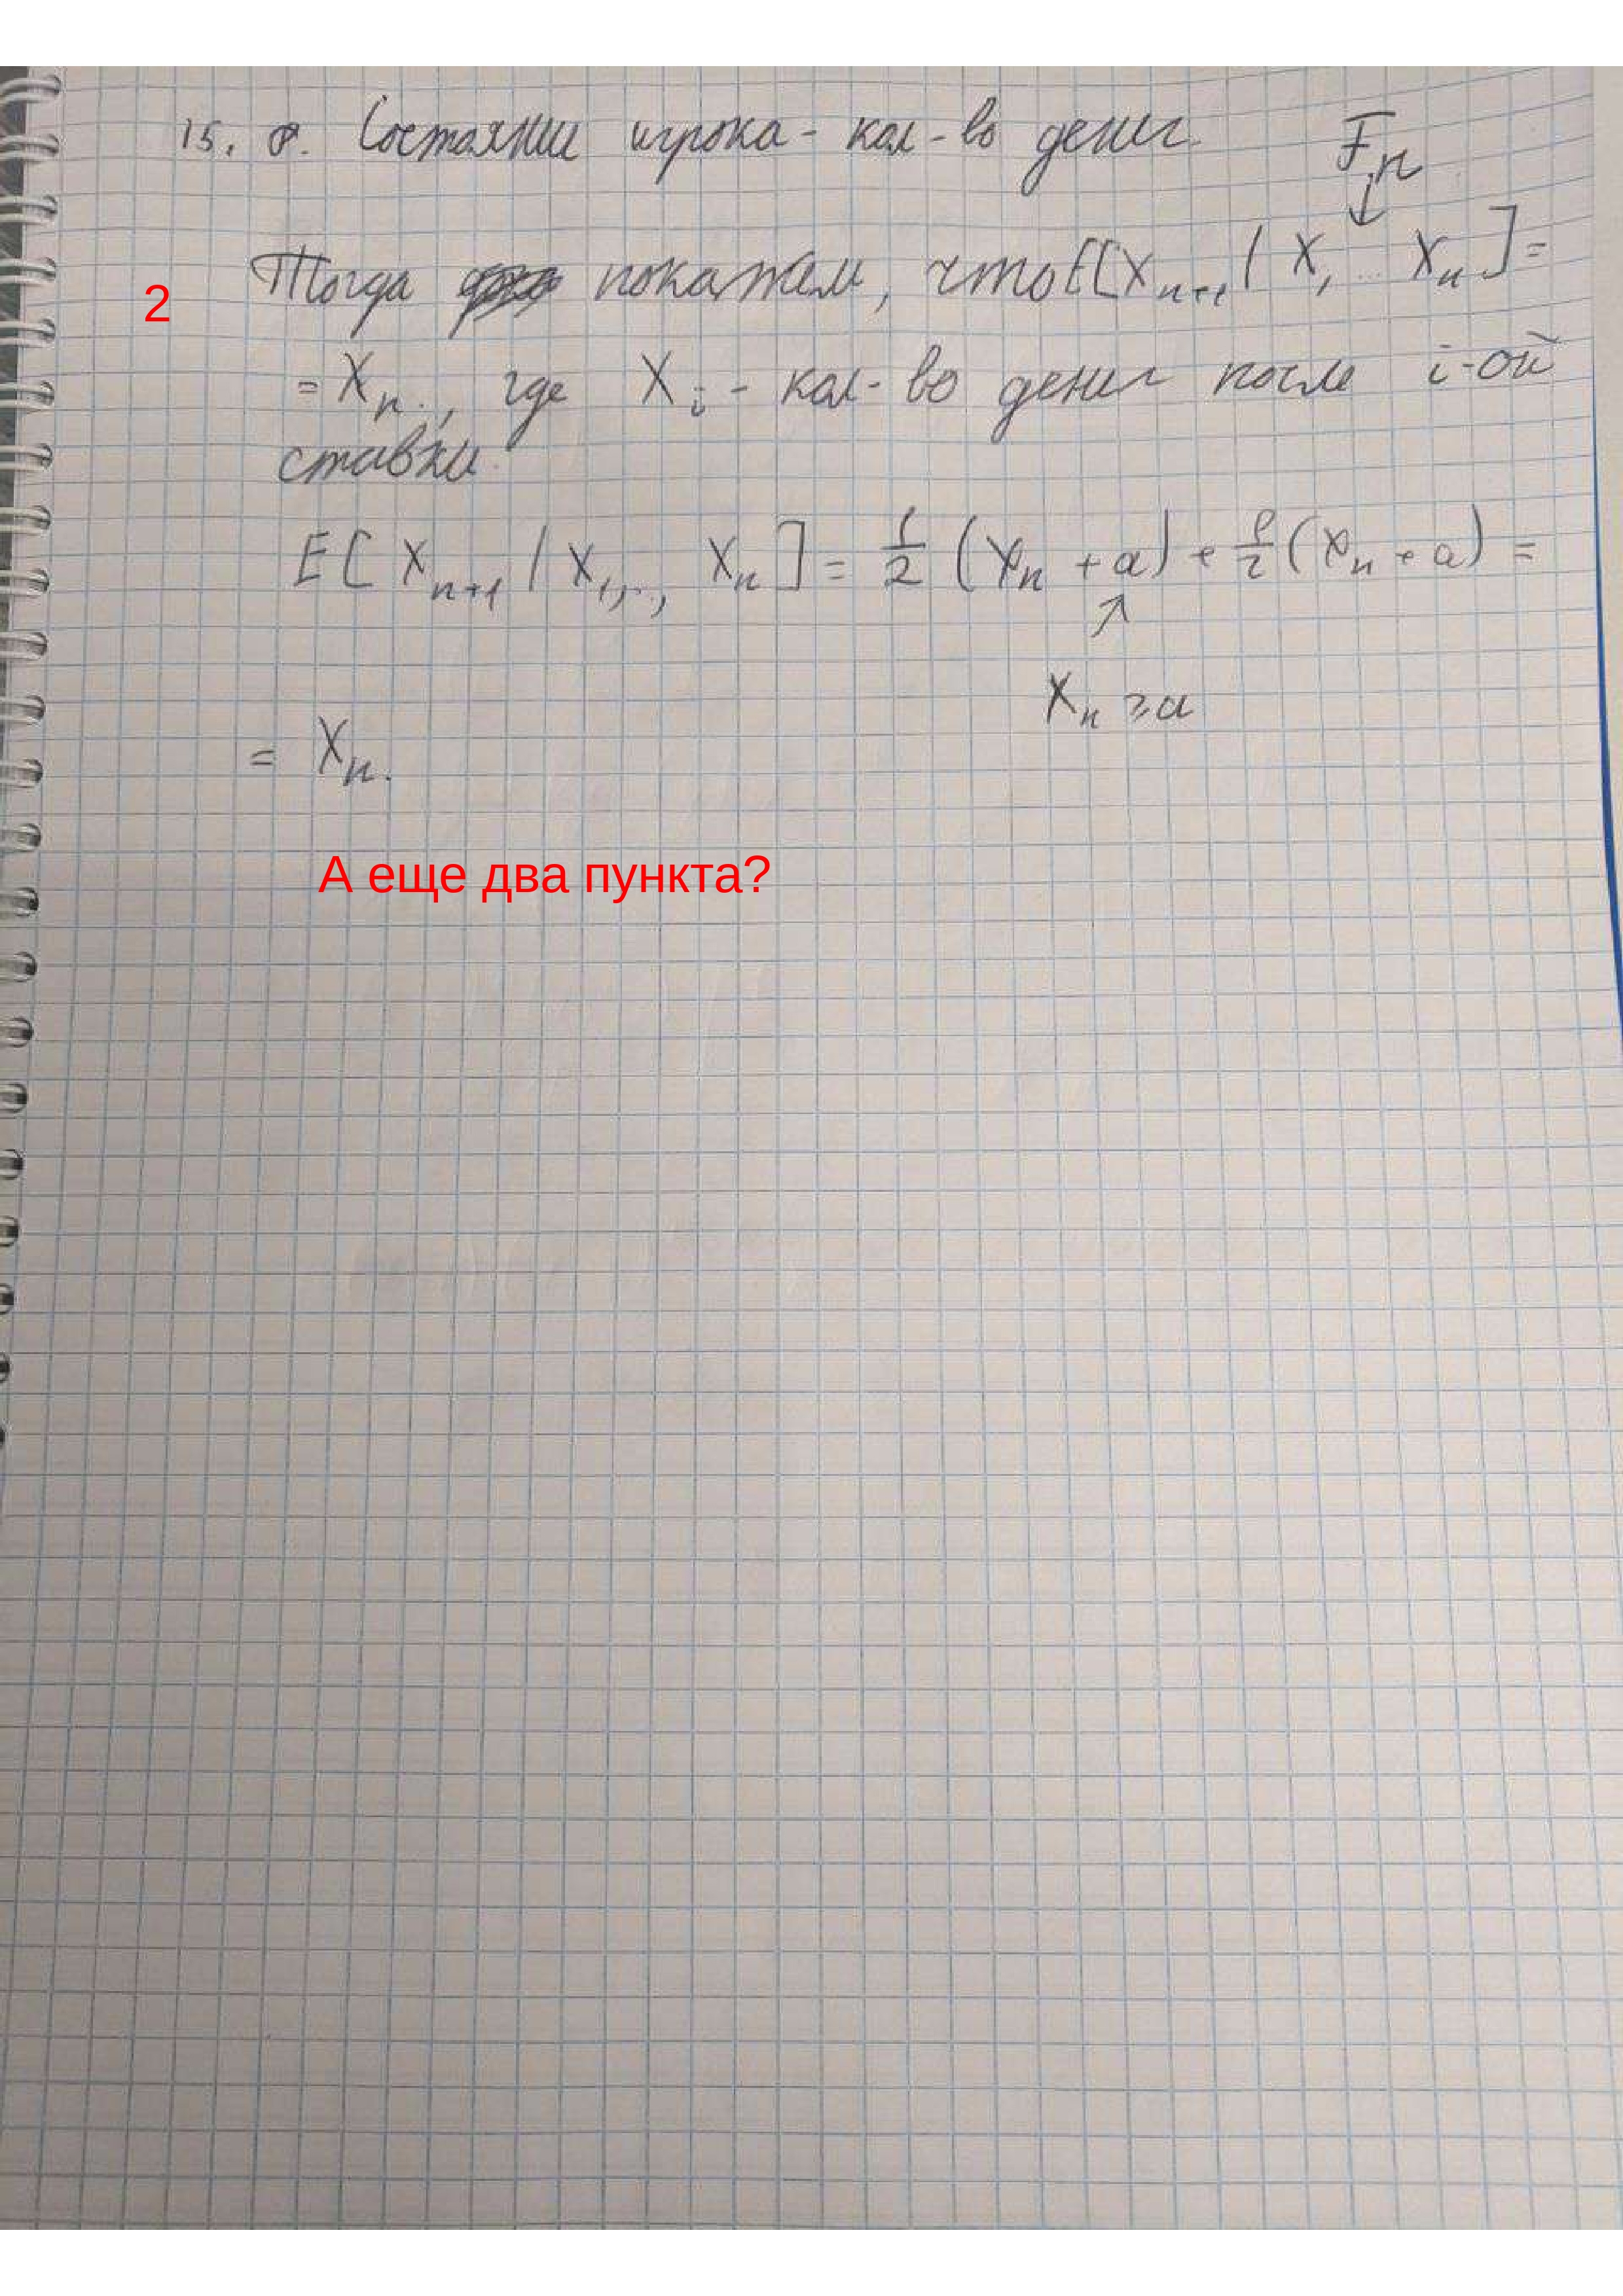 15. 8. Состояние игрока - кол-во денег. Fn
↓
2
Тогда покажем, что E[Xn+1 | X1 ... Xn] =
= Xn., где Xi - кол-во денег после i-ой
ставки.
E[Xn+1 | X1,..., Xn] = 1/2 (Xn + a) + 1/2 (Xn + a) =
↗
Xn ≥ a
= Xn.
А еще два пункта?